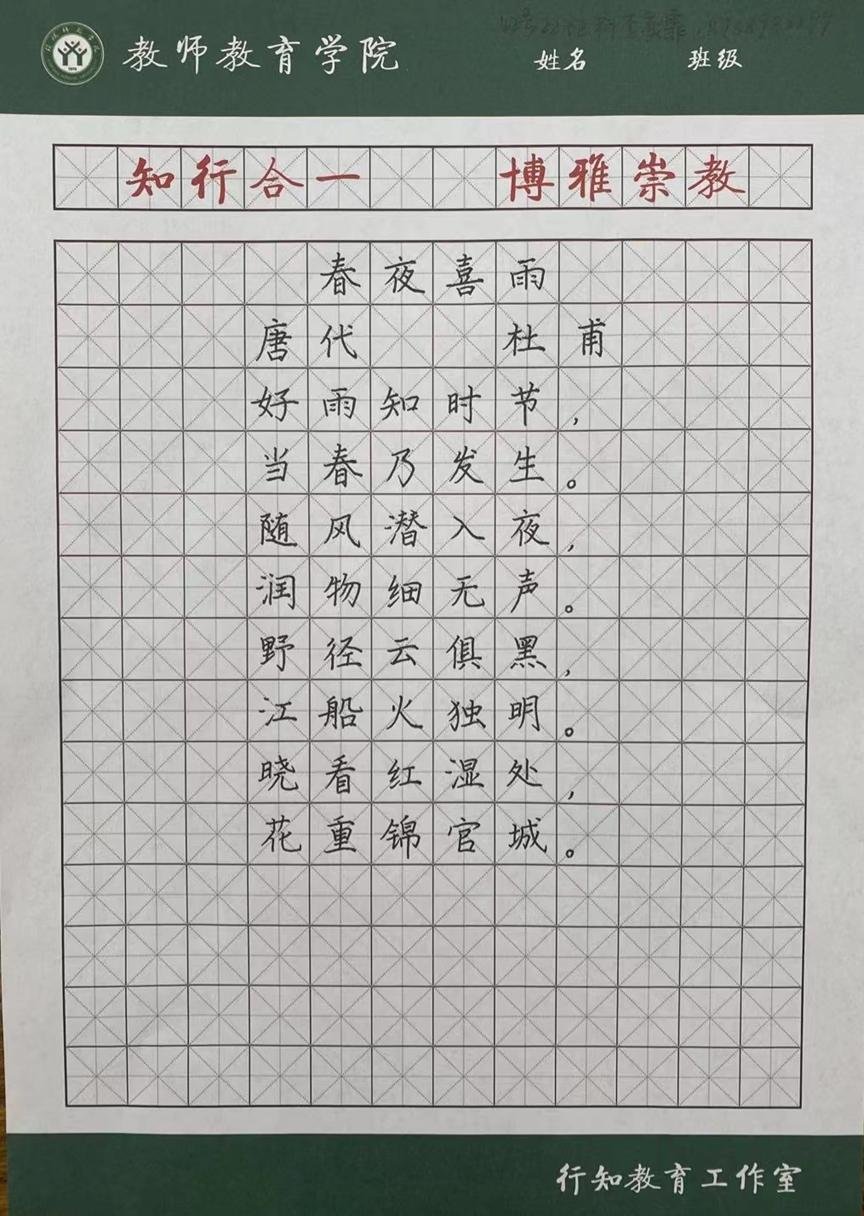 教师教育学院
姓名 班级
知行合一 博雅崇教
春夜喜雨
唐代 杜甫
好雨知时节，
当春乃发生。
随风潜入夜，
润物细无声。
野径云俱黑，
江船火独明。
晓看红湿处，
花重锦官城。
行知教育工作室